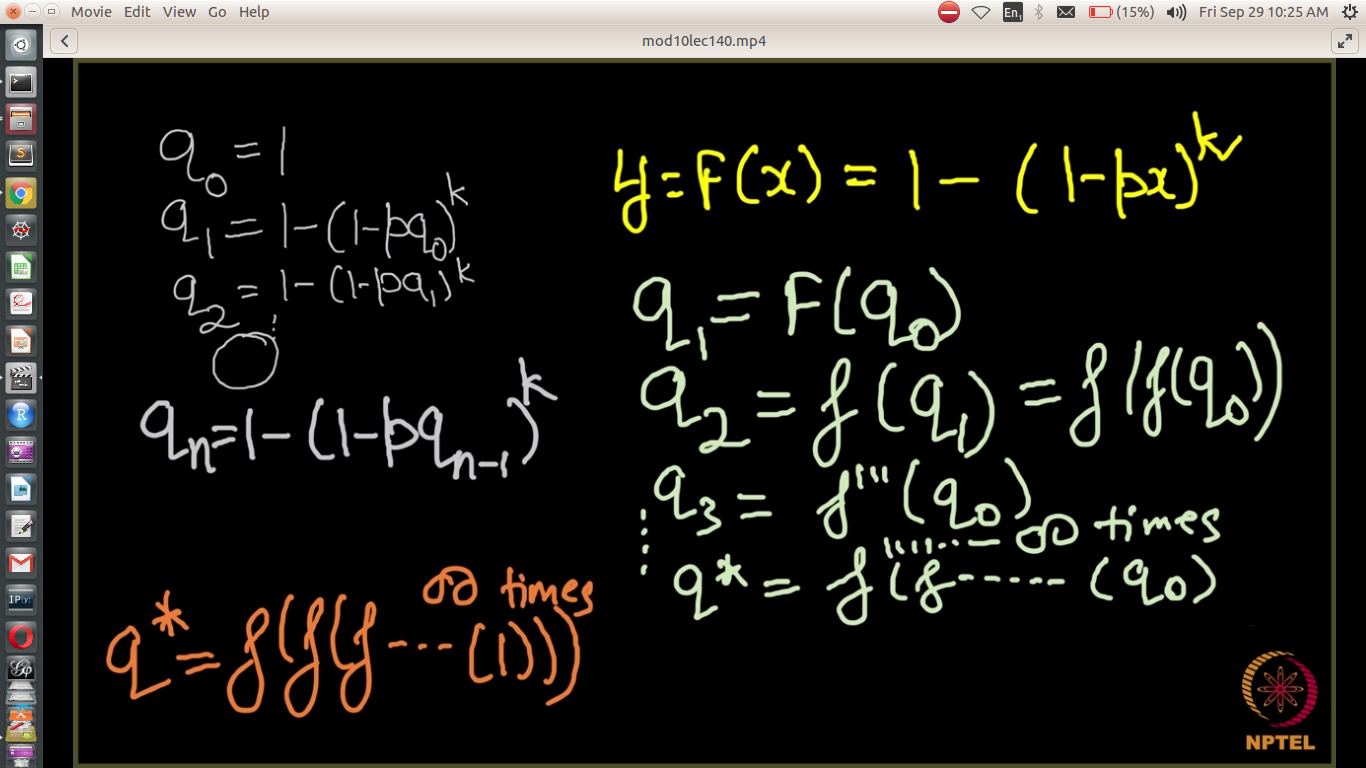 Movie Edit View Go Help
En₁ (15%) Fri Sep 29 10:25 AM
mod10lec140.mp4
q₀ = 1
q₁ = 1-(1-pq₀)ᵏ
q₂ = 1-(1-pq₁)ᵏ
⋮
qₙ=1-(1-pqₙ₋₁)ᵏ
q* = f(f(f---(1)))
∞ times
y=F(x) = 1-(1-px)ᵏ
q₁ = F(q₀)
q₂ = f(q₁) = f(f(q₀))
q₃ = f'''(q₀)
⋮
''''..-- ∞ times
q* = f(f-----(q₀)
NPTEL
S
R
IP[y]:
Gp